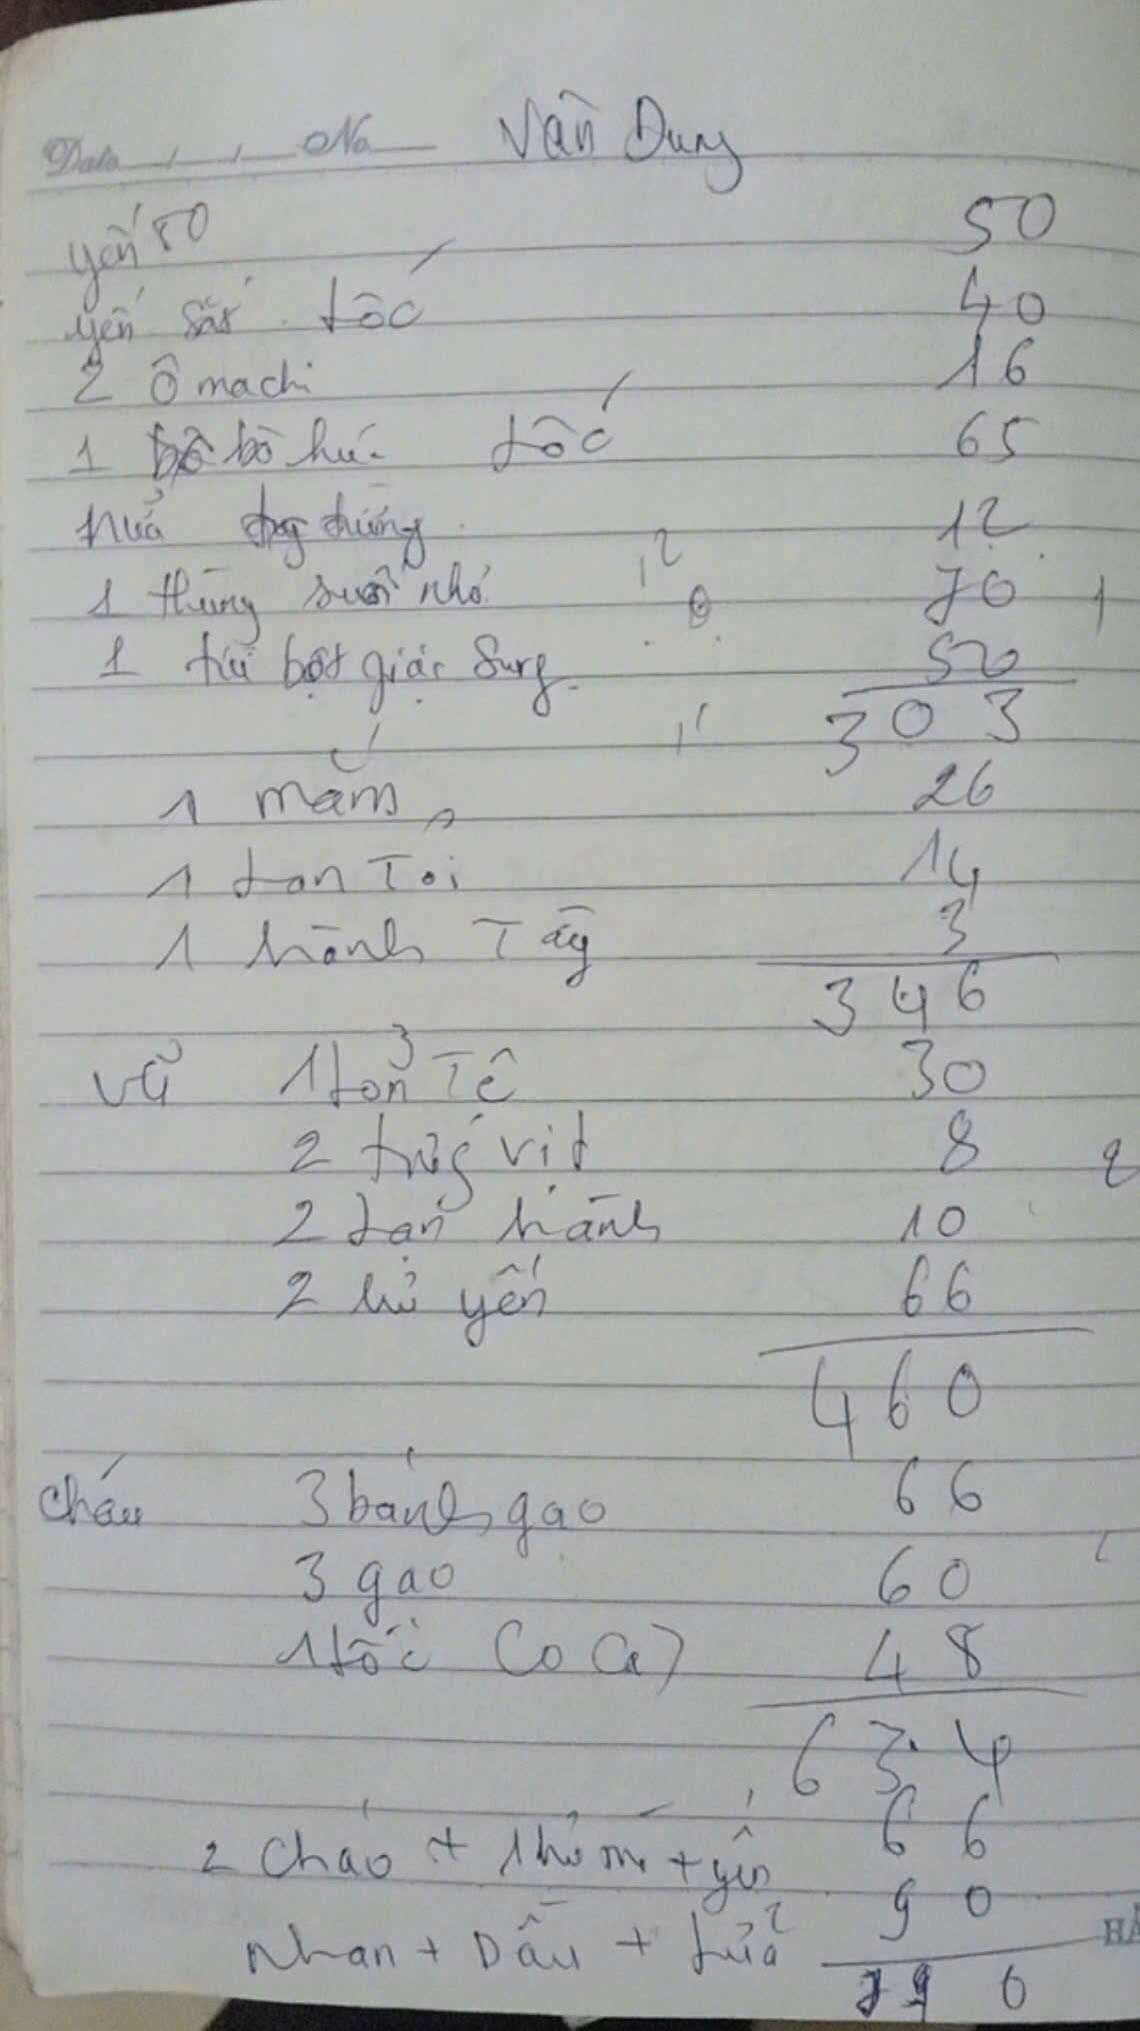 Date / / No Vân Dung
yến 50 50
yến sắt lốc 40
2 Ômachi 16
1 bò húc lốc 65
Nửa trứng 12
1 thùng suối nhỏ 70
1 túi bột giặc Surf 50
303
1 mắm 26
1 lon Tỏi 14
1 hành Tây 3
346
Vũ 1 Tẻ 30
2 trứg vịt 8
2 lạn hành 10
2 hủ yến 66
460
Cháu 3 bánh gạo 66
3 gao 60
1 lốc CoCa 48
634
2 Cháo + 1 hủ + yến 66
Nhan + Dầu + lửa 90
790